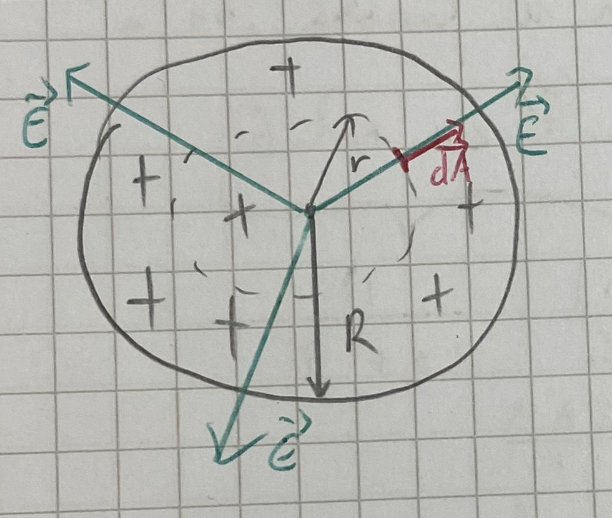 +
E⃗
E⃗
r
dA⃗
+
+
+
+
+
+
R
E⃗